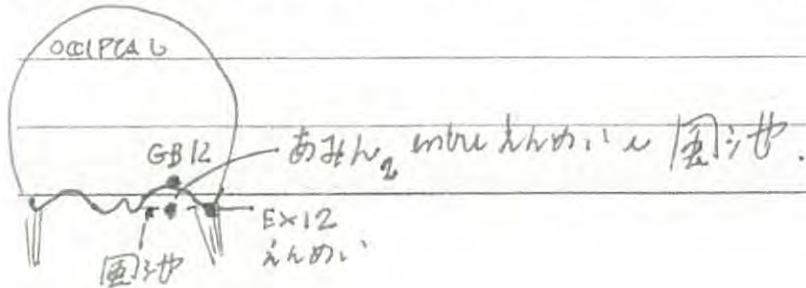 OCCIPCAL
GB12
あみん₂ entre えんめい e 風池.
EX12
えんめい
風池